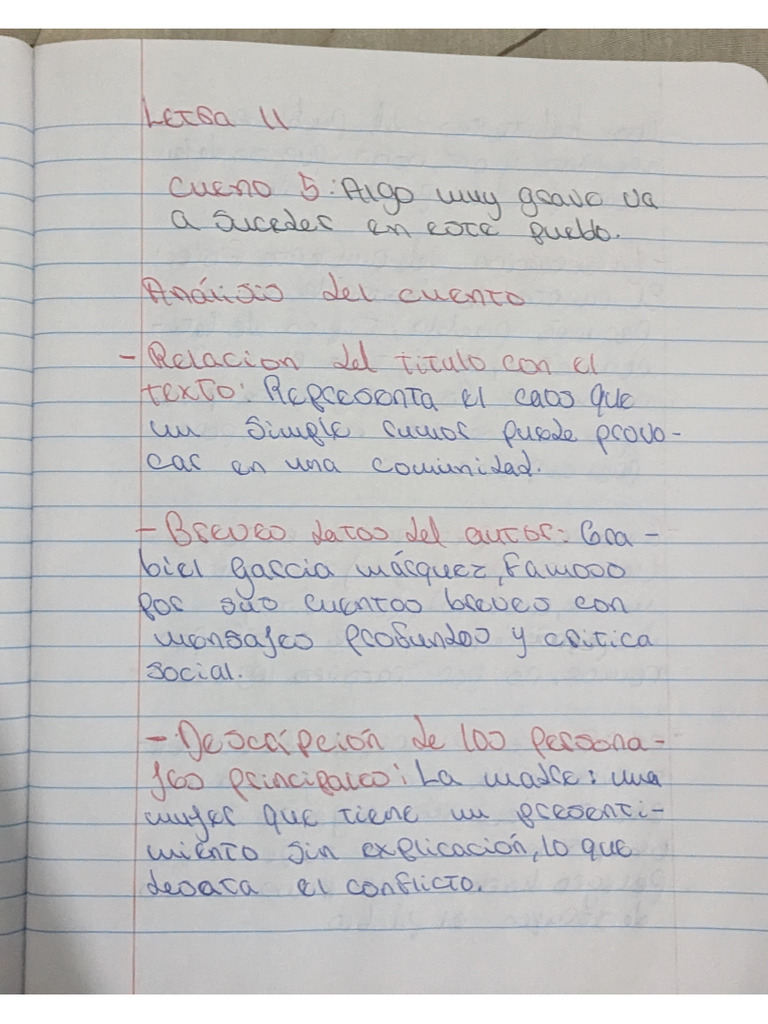 Letra 11
Cueno 5: Algo muy grave va
a suceder en este pueblo.
Análisis del cuento
- Relacion del titulo con el
texto: Representa el caos que
un simple rumor puede provo-
car en una comunidad.
- Breves datos del autor: Gra-
biel Garcia Márquez, Famoso
por sus cuentos breves con
mensajes profundos y critica
social.
- Descripción de los persona-
jes principales: La madre: una
mujer que tiene un presenti-
miento sin explicación, lo que
desata el conflicto.